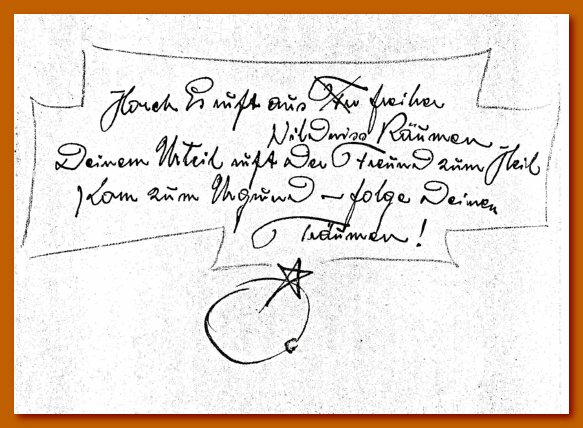 Horch Es ruft aus freiher
Wildniss Räumen
Deinem Urteil ruft der Freund zum Heil
Kom zum Urgund – folge Deinen
Träumen!